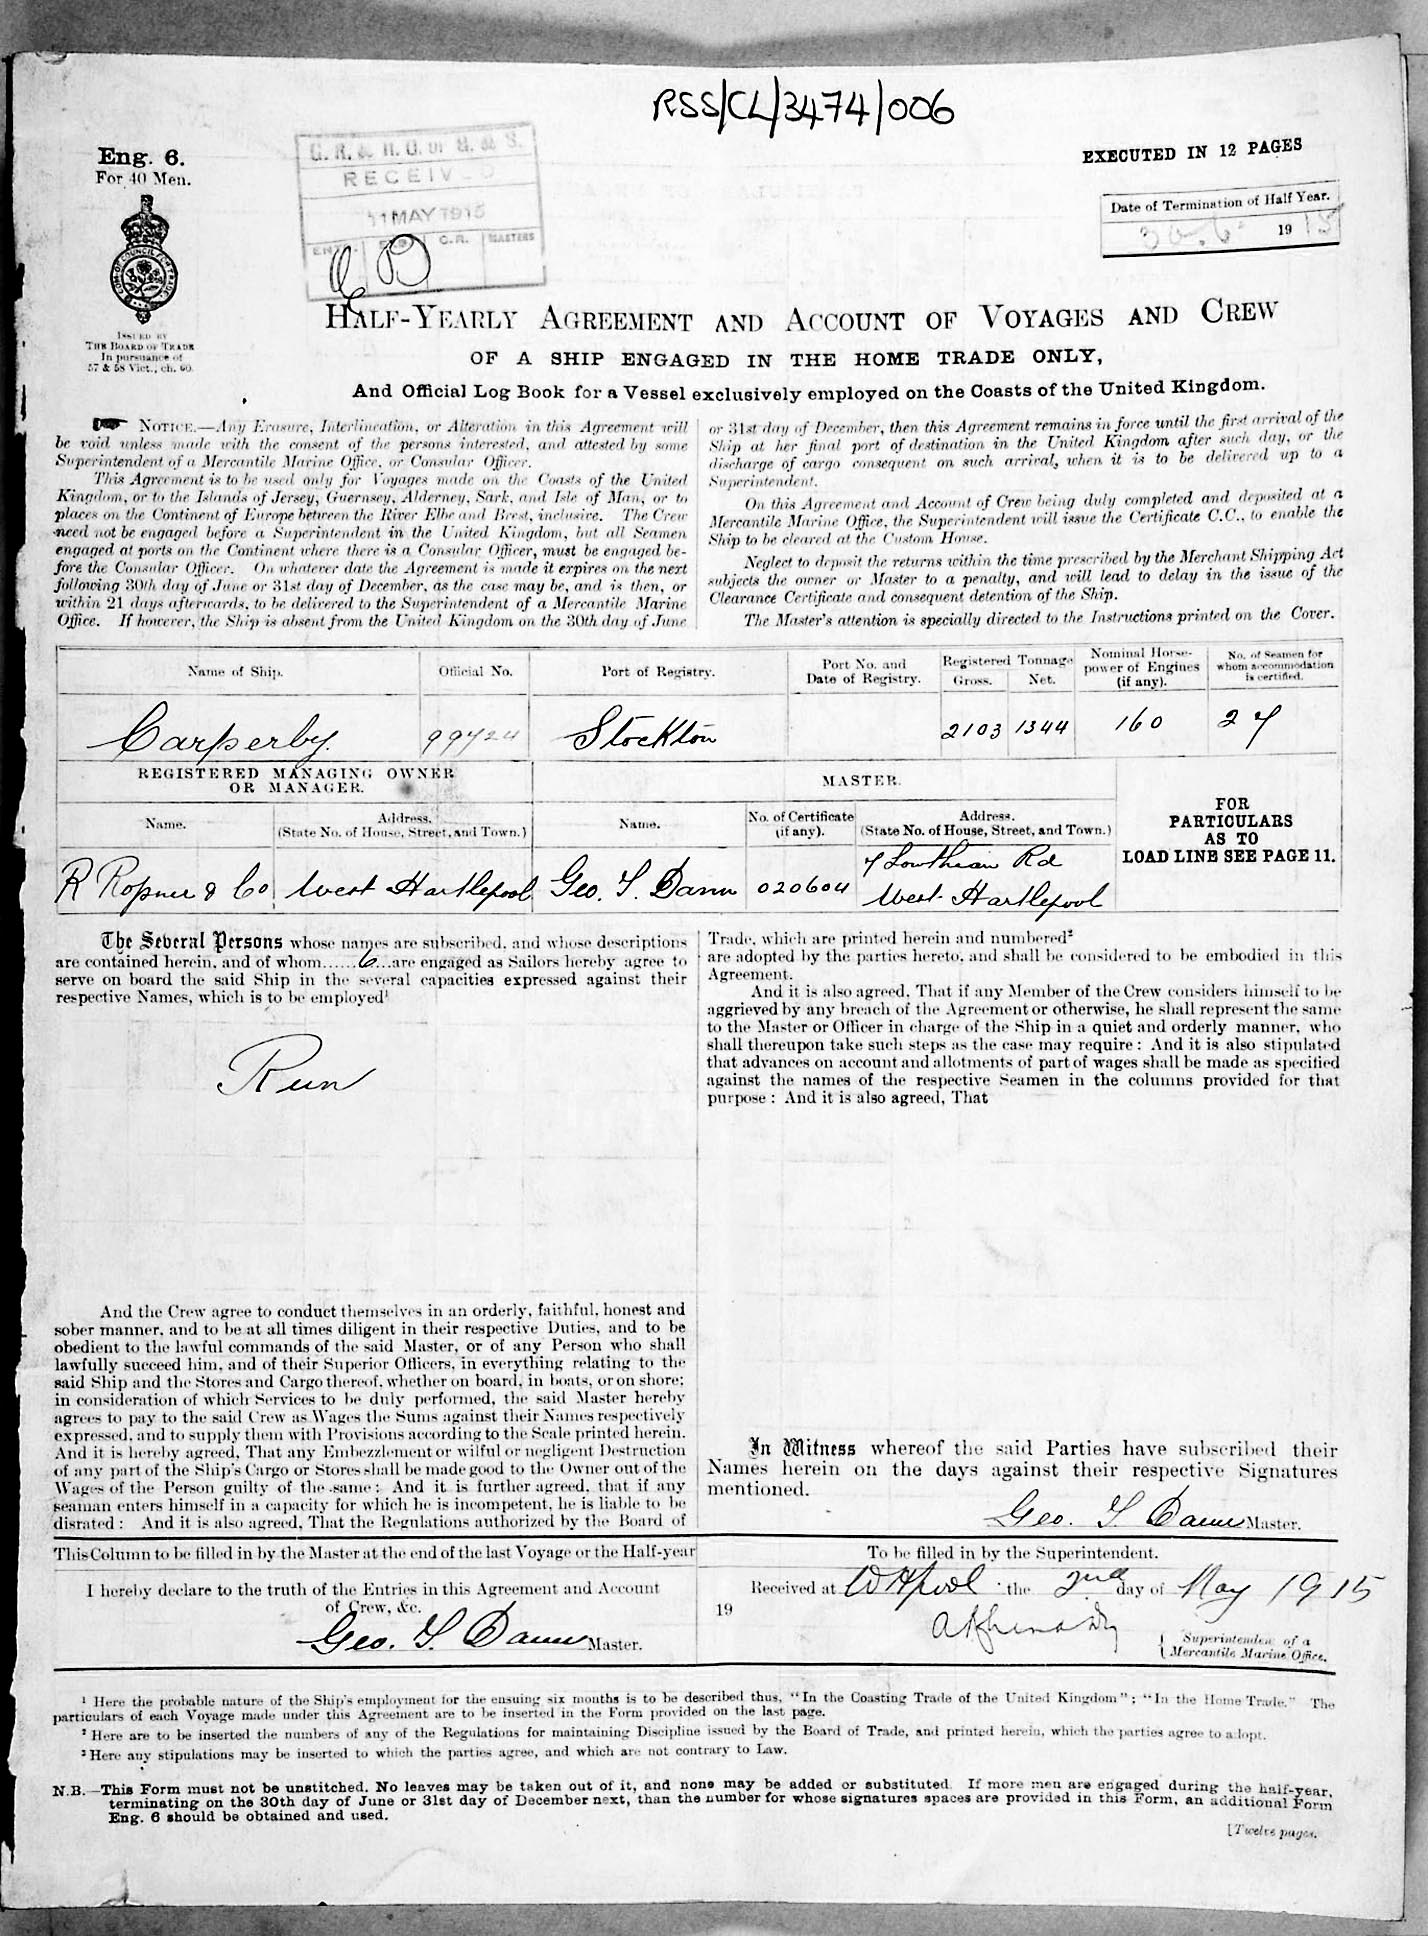 RSS/CL/3474/006
Eng. 6.
For 40 Men.
ISSUED BY
THE BOARD OF TRADE
In pursuance of
57 & 58 Vict., ch. 60.
G. R. & H. O. of S. & S.
RECEIVED
11 MAY 1915
C.R. MASTERS
EXECUTED IN 12 PAGES
Date of Termination of Half Year.
30.6. 1915
HALF-YEARLY AGREEMENT AND ACCOUNT OF VOYAGES AND CREW
OF A SHIP ENGAGED IN THE HOME TRADE ONLY,
And Official Log Book for a Vessel exclusively employed on the Coasts of the United Kingdom.
NOTICE.—Any Erasure, Interlineation, or Alteration in this Agreement will
be void unless made with the consent of the persons interested, and attested by some
Superintendent of a Mercantile Marine Office, or Consular Officer.
This Agreement is to be used only for Voyages made on the Coasts of the United
Kingdom, or to the Islands of Jersey, Guernsey, Alderney, Sark, and Isle of Man, or to
places on the Continent of Europe between the River Elbe and Brest, inclusive. The Crew
need not be engaged before a Superintendent in the United Kingdom, but all Seamen
engaged at ports on the Continent where there is a Consular Officer, must be engaged be-
fore the Consular Officer. On whatever date the Agreement is made it expires on the next
following 30th day of June or 31st day of December, as the case may be, and is then, or
within 21 days afterwards, to be delivered to the Superintendent of a Mercantile Marine
Office. If however, the Ship is absent from the United Kingdom on the 30th day of June
or 31st day of December, then this Agreement remains in force until the first arrival of the
Ship at her final port of destination in the United Kingdom after such day, or the
discharge of cargo consequent on such arrival, when it is to be delivered up to a
Superintendent.
On this Agreement and Account of Crew being duly completed and deposited at a
Mercantile Marine Office, the Superintendent will issue the Certificate C.C., to enable the
Ship to be cleared at the Custom House.
Neglect to deposit the returns within the time prescribed by the Merchant Shipping Act
subjects the owner or Master to a penalty, and will lead to delay in the issue of the
Clearance Certificate and consequent detention of the Ship.
The Master's attention is specially directed to the Instructions printed on the Cover.
Name of Ship.
Official No.
Port of Registry.
Port No. and
Date of Registry.
Registered Tonnage
Gross. Net.
Nominal Horse-
power of Engines
(if any).
No. of Seamen for
whom accommodation
is certified.
Carperby 99724 Stockton 2103 1344 160 27
REGISTERED MANAGING OWNER
OR MANAGER.
MASTER.
Name.
Address.
(State No. of House, Street, and Town.)
Name.
No. of Certificate
(if any).
Address.
(State No. of House, Street, and Town.)
FOR
PARTICULARS
AS TO
LOAD LINE SEE PAGE 11.
R Ropner & Co West Hartlepool Geo. S. Dann 020604
7 Lowthian Rd
West Hartlepool
The Several Persons whose names are subscribed, and whose descriptions
are contained herein, and of whom......6...are engaged as Sailors hereby agree to
serve on board the said Ship in the several capacities expressed against their
respective Names, which is to be employed¹
Run
And the Crew agree to conduct themselves in an orderly, faithful, honest and
sober manner, and to be at all times diligent in their respective Duties, and to be
obedient to the lawful commands of the said Master, or of any Person who shall
lawfully succeed him, and of their Superior Officers, in everything relating to the
said Ship and the Stores and Cargo thereof, whether on board, in boats, or on shore;
in consideration of which Services to be duly performed, the said Master hereby
agrees to pay to the said Crew as Wages the Sums against their Names respectively
expressed, and to supply them with Provisions according to the Scale printed herein.
And it is hereby agreed, That any Embezzlement or wilful or negligent Destruction
of any part of the Ship's Cargo or Stores shall be made good to the Owner out of the
Wages of the Person guilty of the same: And it is further agreed, that if any
seaman enters himself in a capacity for which he is incompetent, he is liable to be
disrated: And it is also agreed, That the Regulations authorized by the Board of
Trade, which are printed herein and numbered²
are adopted by the parties hereto, and shall be considered to be embodied in this
Agreement.
And it is also agreed, That if any Member of the Crew considers himself to be
aggrieved by any breach of the Agreement or otherwise, he shall represent the same
to the Master or Officer in charge of the Ship in a quiet and orderly manner, who
shall thereupon take such steps as the case may require: And it is also stipulated
that advances on account and allotments of part of wages shall be made as specified
against the names of the respective Seamen in the columns provided for that
purpose: And it is also agreed, That
In Witness whereof the said Parties have subscribed their
Names herein on the days against their respective Signatures
mentioned.
Geo. S. Dann Master.
This Column to be filled in by the Master at the end of the last Voyage or the Half-year
I hereby declare to the truth of the Entries in this Agreement and Account
of Crew, &c.
Geo. S. Dann Master.
To be filled in by the Superintendent.
Received at W Hpool the 2nd day of May 1915
19
Superintendent of a
Mercantile Marine Office.
¹ Here the probable nature of the Ship's employment for the ensuing six months is to be described thus, "In the Coasting Trade of the United Kingdom"; "In the Home Trade." The
particulars of each Voyage made under this Agreement are to be inserted in the Form provided on the last page.
² Here are to be inserted the numbers of any of the Regulations for maintaining Discipline issued by the Board of Trade, and printed herein, which the parties agree to adopt.
³ Here any stipulations may be inserted to which the parties agree, and which are not contrary to Law.
N.B.—This Form must not be unstitched. No leaves may be taken out of it, and none may be added or substituted. If more men are engaged during the half-year,
terminating on the 30th day of June or 31st day of December next, than the number for whose signatures spaces are provided in this Form, an additional Form
Eng. 6 should be obtained and used.
[Twelve pages.